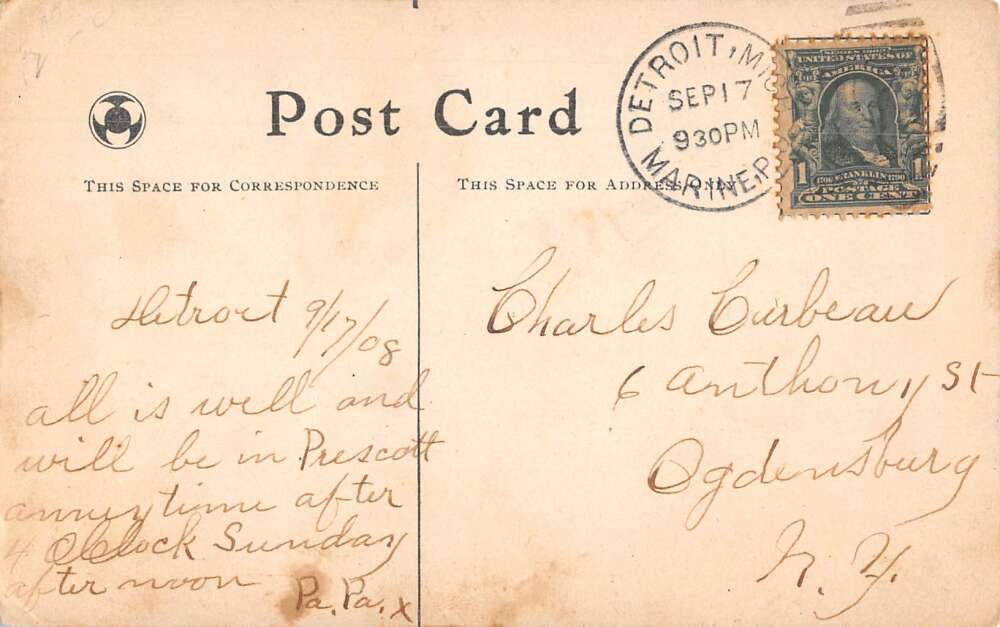 Post Card
THIS SPACE FOR CORRESPONDENCE
THIS SPACE FOR ADDRESS ONLY
DETROIT, MICH
SEP 17
930PM
MARINE.P.
SERIES 1902
UNITED STATES OF
AMERICA
1 1706 FRANKLIN 1790 1
POSTAGE
ONE CENT
Detroit 9/17/08
all is well and
will be in Prescott
anneytime after
4 OClock Sunday
after noon
Pa. Pa. x
Charles Curbeau
6 Anthony St
Ogdensburg
N. Y.